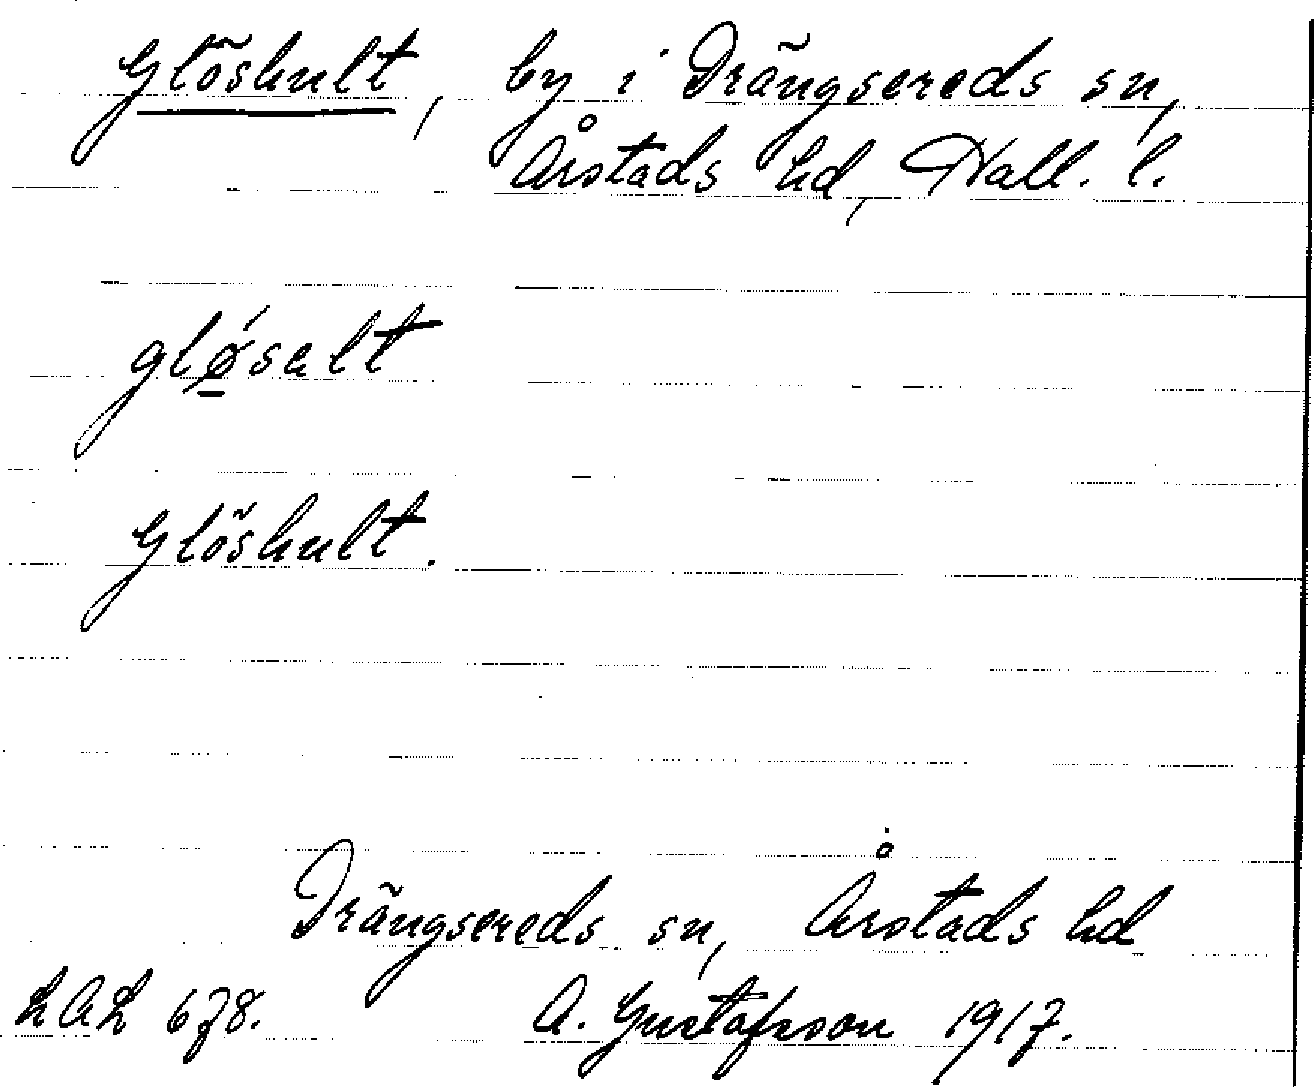 Glöshult, by i Drängsereds sn,
Årstads hd, Hall. l.
glǿsalt
Glöshult.
Drängsereds sn, Årstads hd
LAL 678. A. Gustafsson 1917.